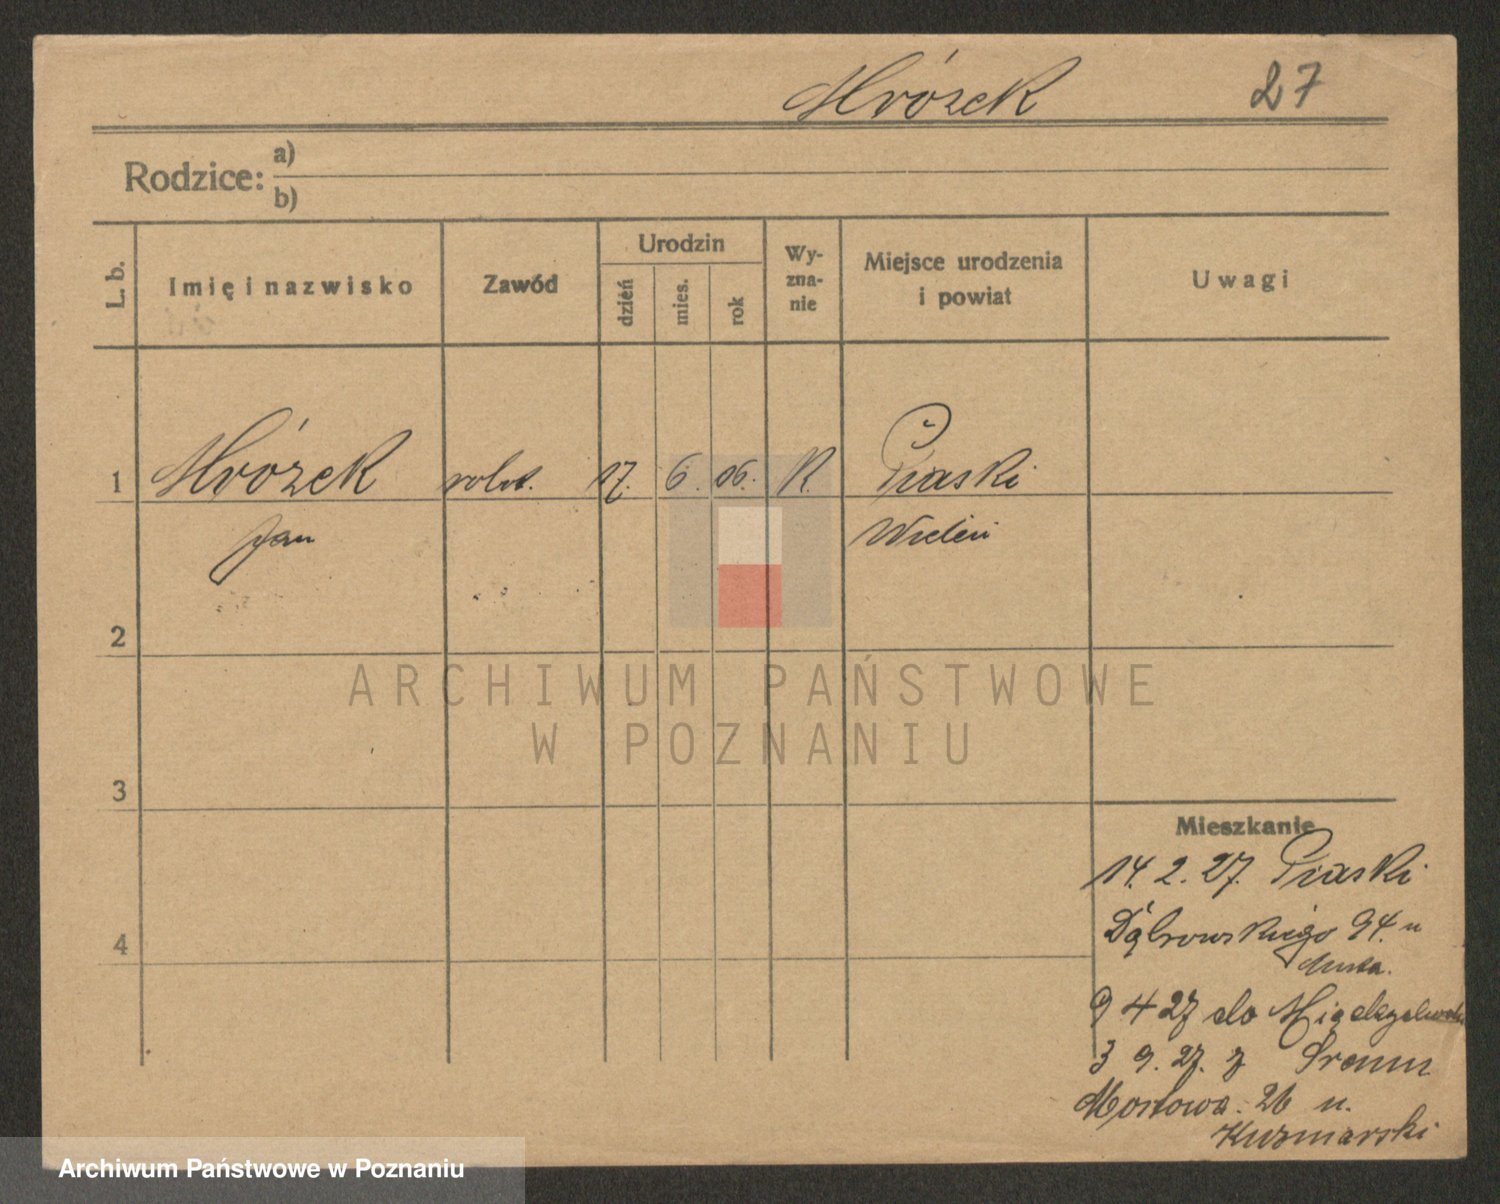 Mrózek 27
Rodzice: a)
b)
L. b.
Imię i nazwisko
Zawód
Urodzin
dzień
mies.
rok
Wy-
zna-
nie
Miejsce urodzenia
i powiat
Uwagi
1 Mrózek robot. 17. 6. 06. K. Piaski
Jan Wieleń
2
ARCHIWUM PAŃSTWOWE
W POZNANIU
3
Mieszkanie
14. 2. 27. Piaski
Dąbrowskiego 94. u
9 4 27 do
3 9. 27. z Śremu
Mostowa. 26 u.
Kuzmarski
4
Archiwum Państwowe w Poznaniu